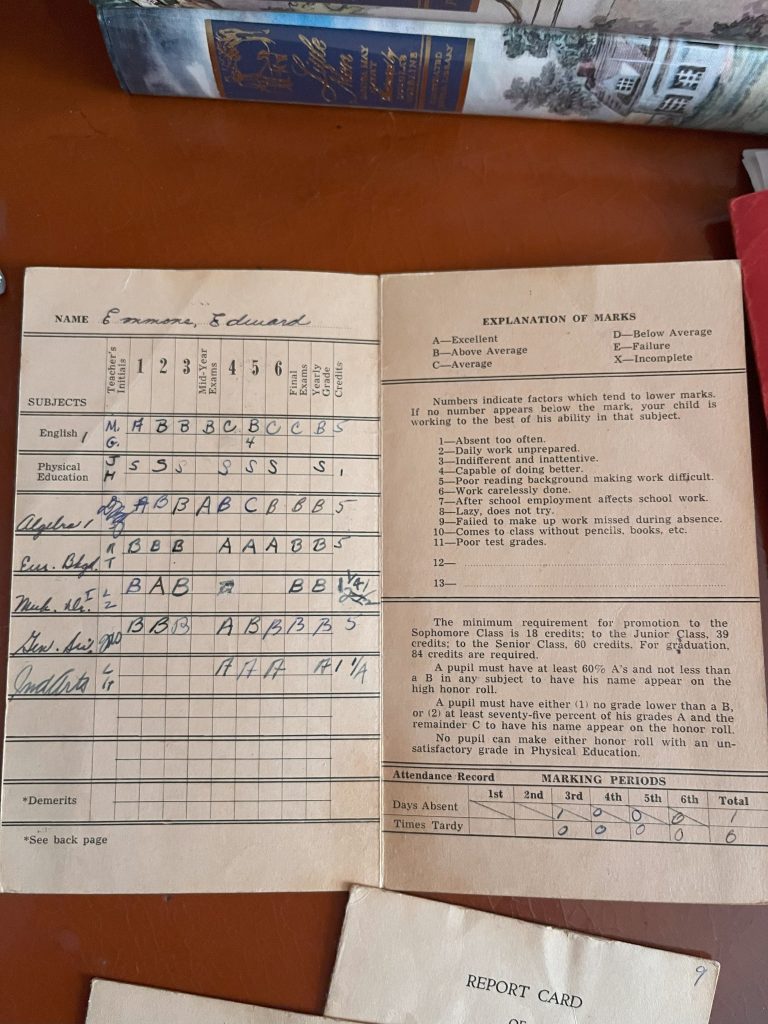 Little Men
NAME Emmons, Edward
SUBJECTS Teacher's Initials 1 2 3 Mid-Year Exams 4 5 6 Final Exams Yearly Grade Credits
English 1 M. G. A B B B C B 4 C C B 5
Physical Education J H S S S S S S S 1
Algebra 1 A B B A B C B B B 5
Eur. Bkgd. R T B B B A A A B B 5
I L B A B B B 1 1/4
Gen. Sci. B B B A B B B B 5
Ind Arts L A A A A 1 1/4
*Demerits
*See back page
EXPLANATION OF MARKS
A—Excellent D—Below Average
B—Above Average E—Failure
C—Average X—Incomplete
Numbers indicate factors which tend to lower marks.
If no number appears below the mark, your child is
working to the best of his ability in that subject.
1—Absent too often.
2—Daily work unprepared.
3—Indifferent and inattentive.
4—Capable of doing better.
5—Poor reading background making work difficult.
6—Work carelessly done.
7—After school employment affects school work.
8—Lazy, does not try.
9—Failed to make up work missed during absence.
10—Comes to class without pencils, books, etc.
11—Poor test grades.
12—
13—
The minimum requirement for promotion to the
Sophomore Class is 18 credits; to the Junior Class, 39
credits; to the Senior Class, 60 credits. For graduation,
84 credits are required.
A pupil must have at least 60% A's and not less than
a B in any subject to have his name appear on the
high honor roll.
A pupil must have either (1) no grade lower than a B,
or (2) at least seventy-five percent of his grades A and the
remainder C to have his name appear on the honor roll.
No pupil can make either honor roll with an un-
satisfactory grade in Physical Education.
Attendance Record MARKING PERIODS
1st 2nd 3rd 4th 5th 6th Total
Days Absent 1 0 0 0 1
Times Tardy 0 0 0 0 0
REPORT CARD 9
OF